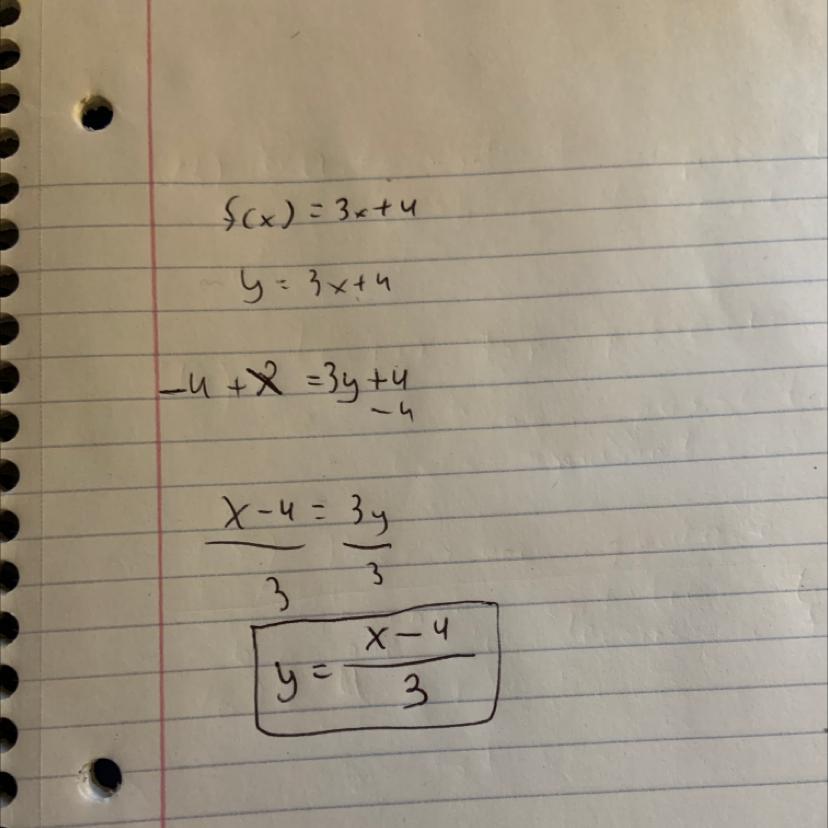 f(x) = 3x+4
y = 3x+4
-4 + x = 3y+4
-4
x-4 = 3y
3 3
x-4
y =
3